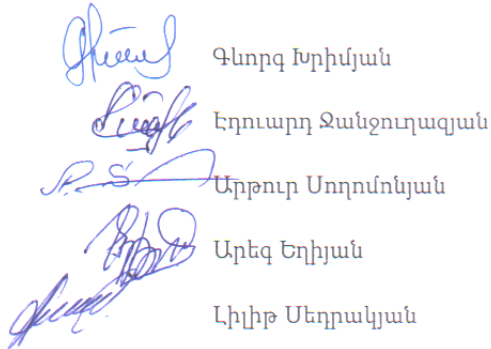 Գևորգ Խրիմյան
Էդուարդ Ջանջուղազյան
Արթուր Սողոմոնյան
Արեգ Եղիյան
Լիլիթ Սեդրակյան